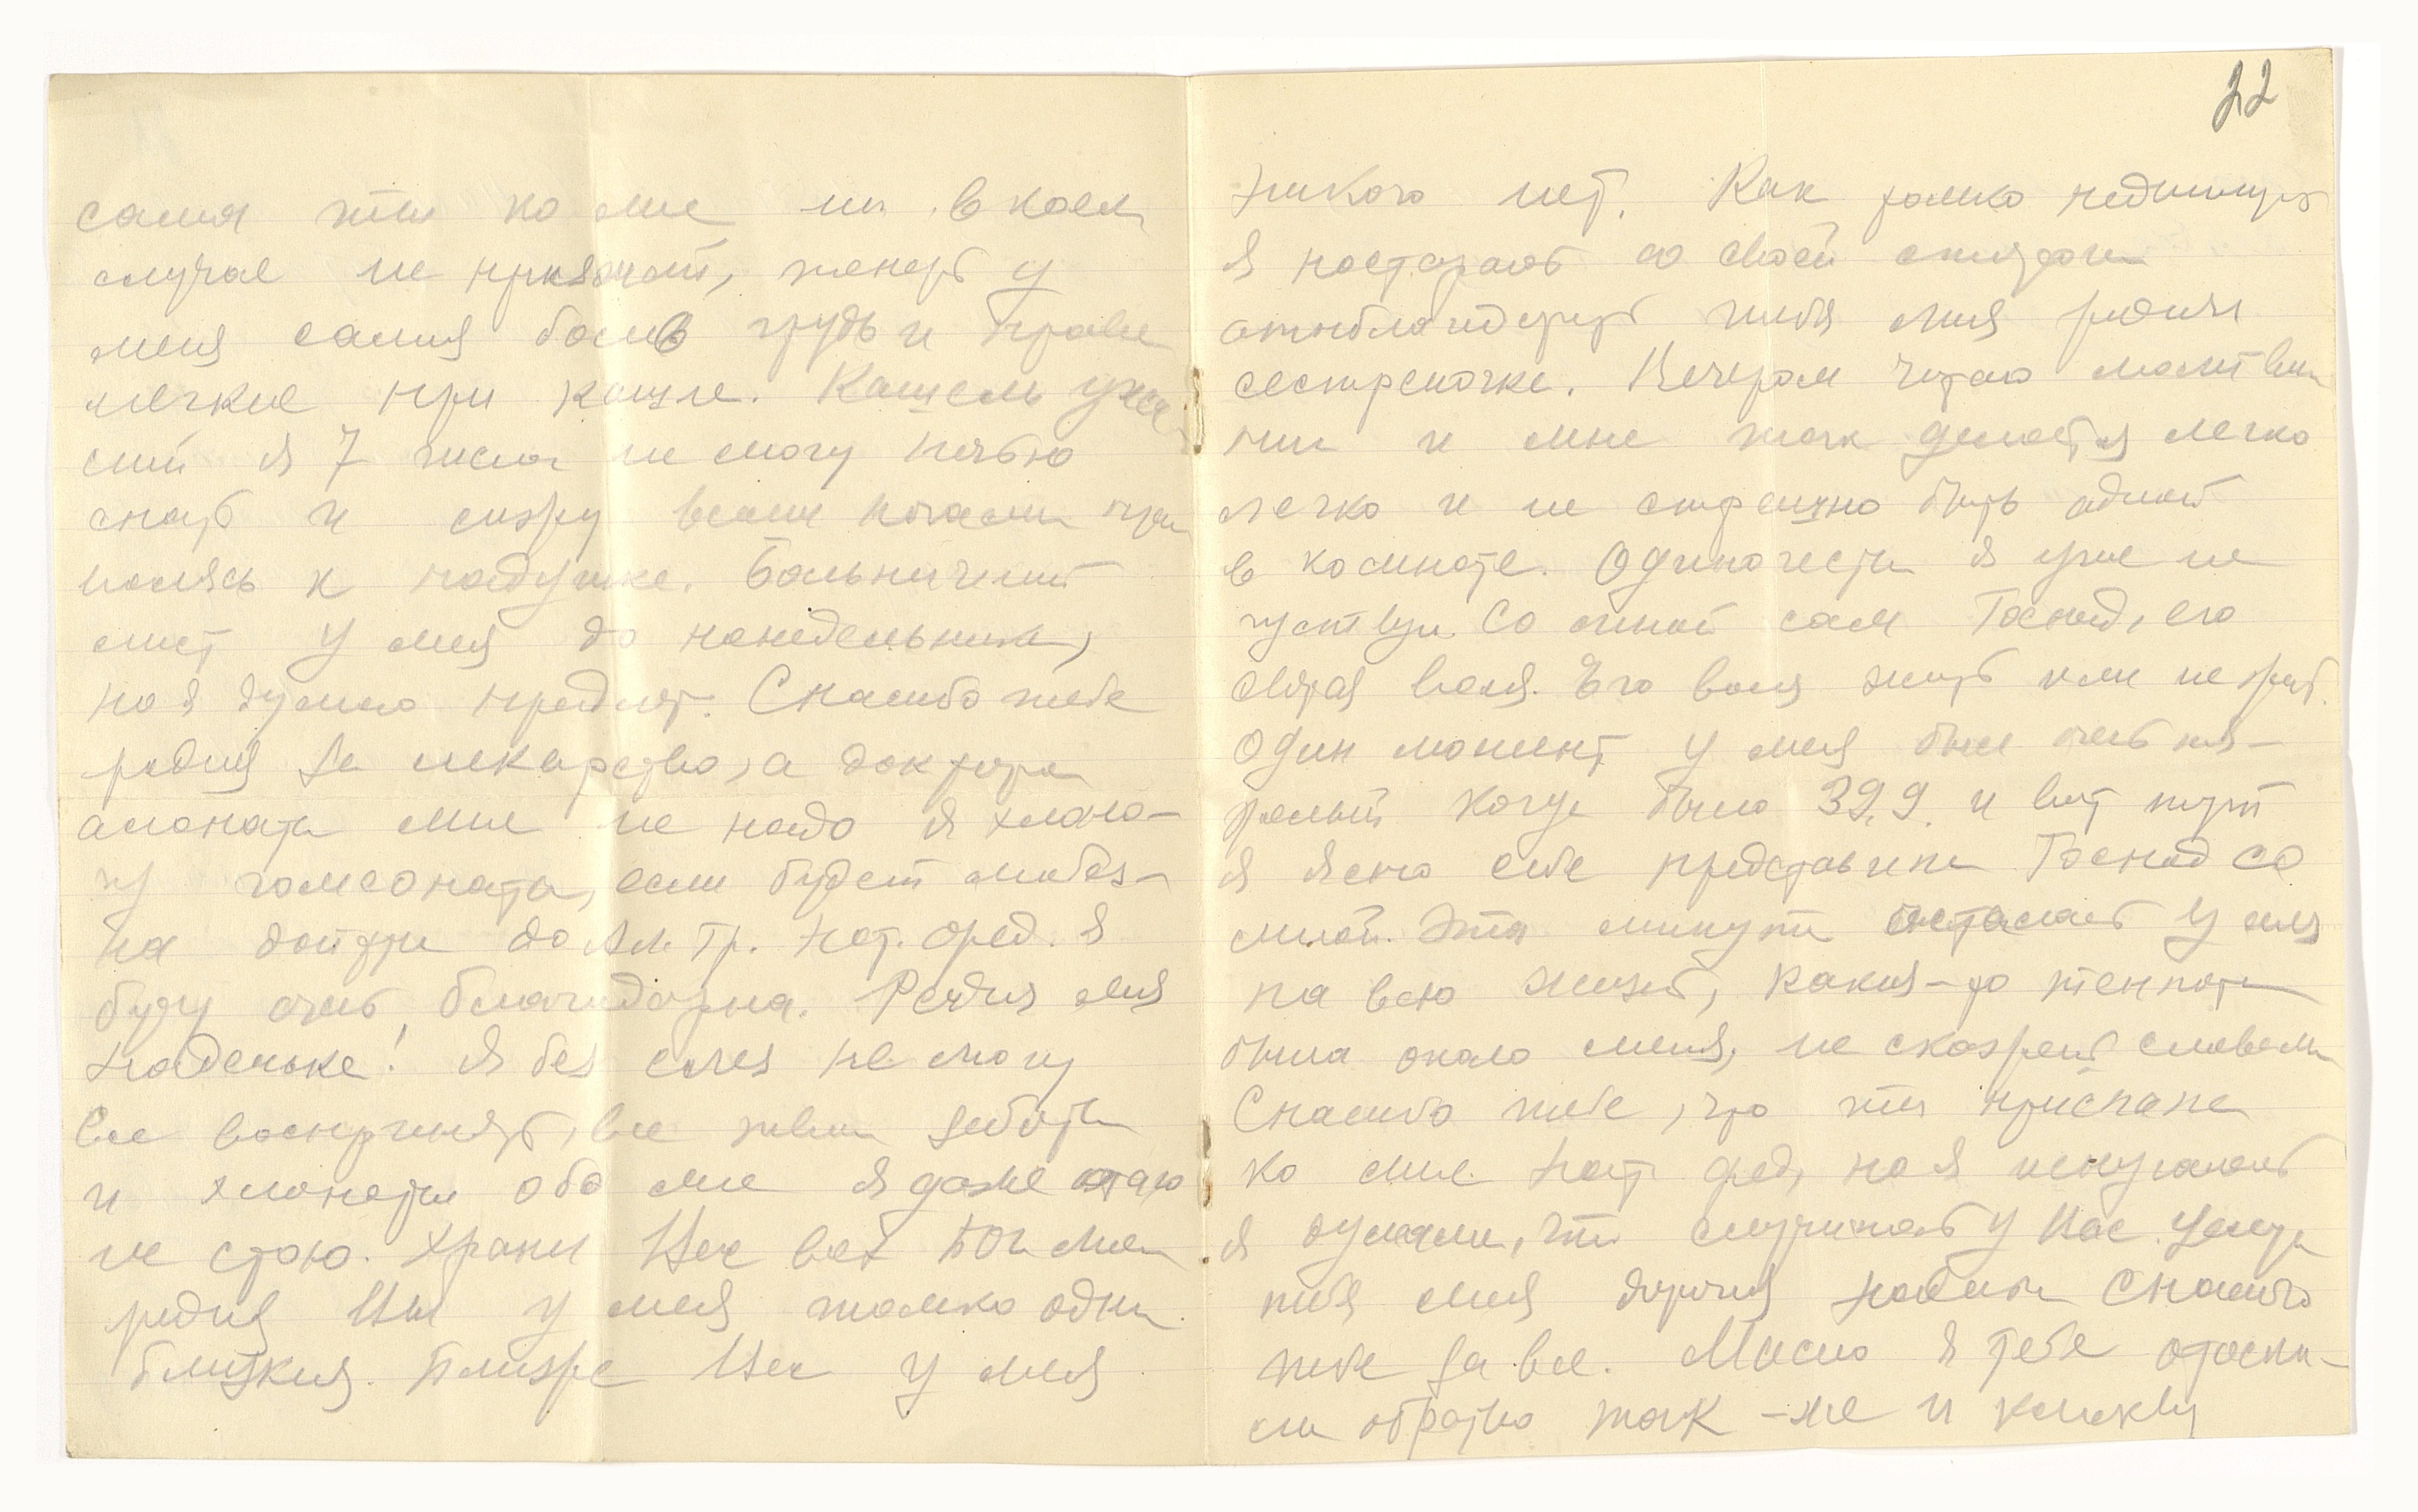 сама ты ко мне ни в коем
случае не приезжай, теперь у
меня самыя боли в груди и правом
легкие при кашле. Кашель ужа
сный я 7 числа не могу ночью
спать и сижу всеми ночами
к подушке. Больничный
лист у меня до понедельника,
но я думаю продлят. Спасибо тебе
родная за лекарство, а доктора
алопата мне не надо я хлопо-
чу гомеопата, если будет любез-
на дойти до Ал. Гр. Нат. Фед. я
буду очень благодарна. Родная моя
Наденька! Я без слез не могу
все воспринять, все твои заботы
и хлопоты обо мне я даже этаго
не стою. Храни Вас всех Бог мои
родныя Вы у меня только одни
близкия. Ближе Вас у меня
никого нет. Как только поднимусь
я постараюсь со своей стороны
отблагодарить тебя моя родная
сестреночка. Вечером читаю молитвы
и мне так делается легко
легко и не страшно быть одной
в комнате. Одиночества я уже не
чувствую. Со мной сам Господь, его
святая воля. Его воля жить или не жить.
Один момент у меня был очень тя-
желый когда было 39,9. и вот тут
я ясно себе представила Господь со
мной. Эта минута осталась у меня
на всю жизнь, какая-то теплота
была около меня, не сказать словами
Спасибо тебе, что ты прислала
ко мне Нат. Фед, но я испугалась
я думала, что случилось у Вас. Целую
тебя моя дорогая Надюша Спасибо
тебе за все. Масло я тебе отосла-
ла обратно так-же и клюкву